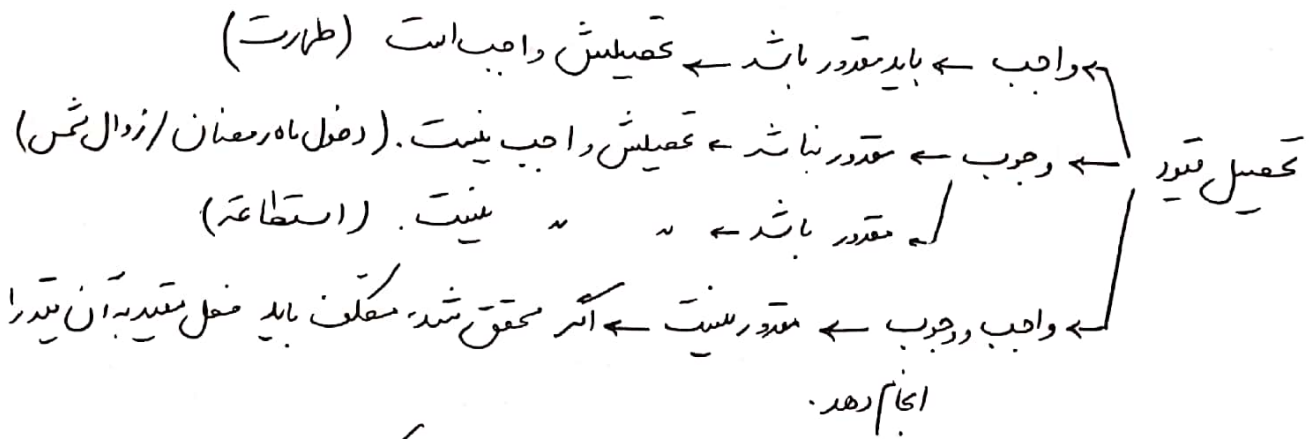 واجب ← باید مقدور باشد ← تحصیلش واجب است (طهارت)
تحصیل قیود ← وجوب ← مقدور نباشد ← تحصیلش واجب نیست. (دخول ماه رمضان / زوال شمس)
← مقدور باشد ← 〃 〃 نیست. (استطاعة)
← واجب و وجوب ← مقدور نیست ← اگر محقق شد، مکلف باید فعل مقید به آن قید را
انجام دهد.